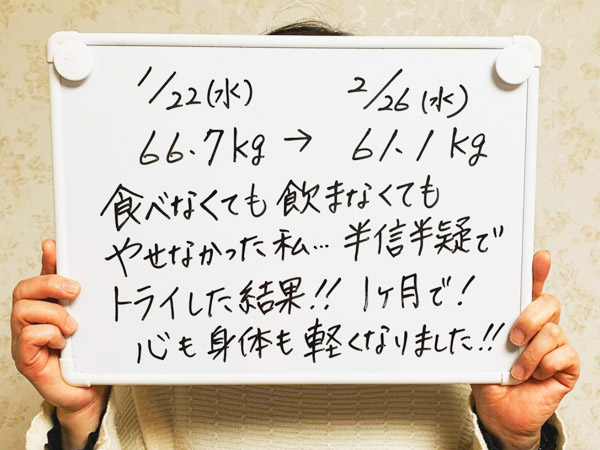 1/22(水) 2/26(水)
66.7kg → 61.1kg
食べなくても飲まなくても
やせなかった私… 半信半疑で
トライした結果!! 1ヶ月で!
心も身体も軽くなりました!!